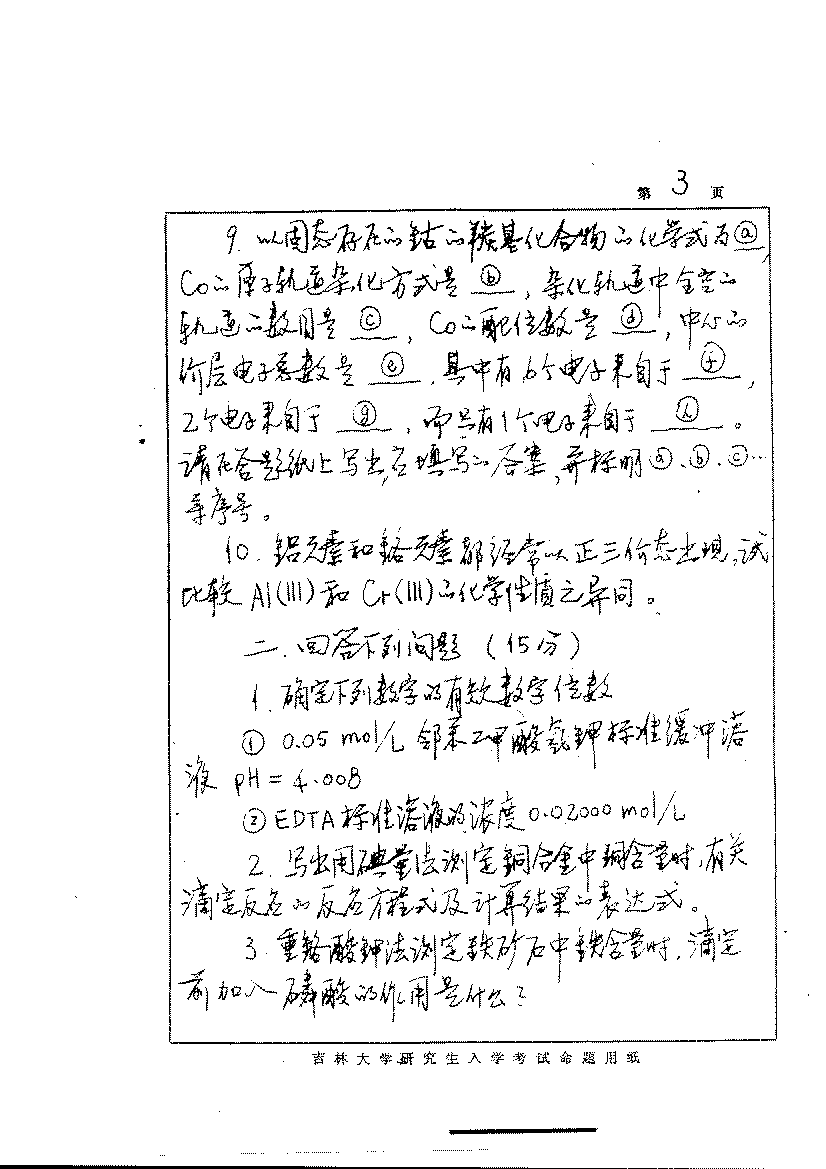 第 3 页
9. 以固态存在的钴的羰基化合物的化学式为 ⓐ ,
Co的原子轨道杂化方式是 ⓑ , 杂化轨道中全空的
轨道的数目是 ⓒ , Co的配位数是 ⓓ , 中心的
价层电子总数是 ⓔ , 其中有6个电子来自于 ⓕ ,
2个电子来自于 ⓖ , 而只有1个电子来自于 ⓗ 。
请在答题纸上写出应填写的答案, 并标明ⓐ、ⓑ、ⓒ…
等序号。
10. 铝元素和铬元素都经常以正三价态出现, 试
比较 Al(III) 和 Cr(III) 的化学性质之异同。
二. 回答下列问题 (15分)
1. 确定下列数字的有效数字位数
① 0.05 mol/L 邻苯二甲酸氢钾标准缓冲溶
液 pH = 4.008
② EDTA标准溶液的浓度 0.02000 mol/L
2. 写出用碘量法测定铜合金中铜含量时, 有关
滴定反应的反应方程式及计算结果的表达式。
3. 重铬酸钾法测定铁矿石中铁含量时, 滴定
前加入磷酸的作用是什么?
吉林大学研究生入学考试命题用纸